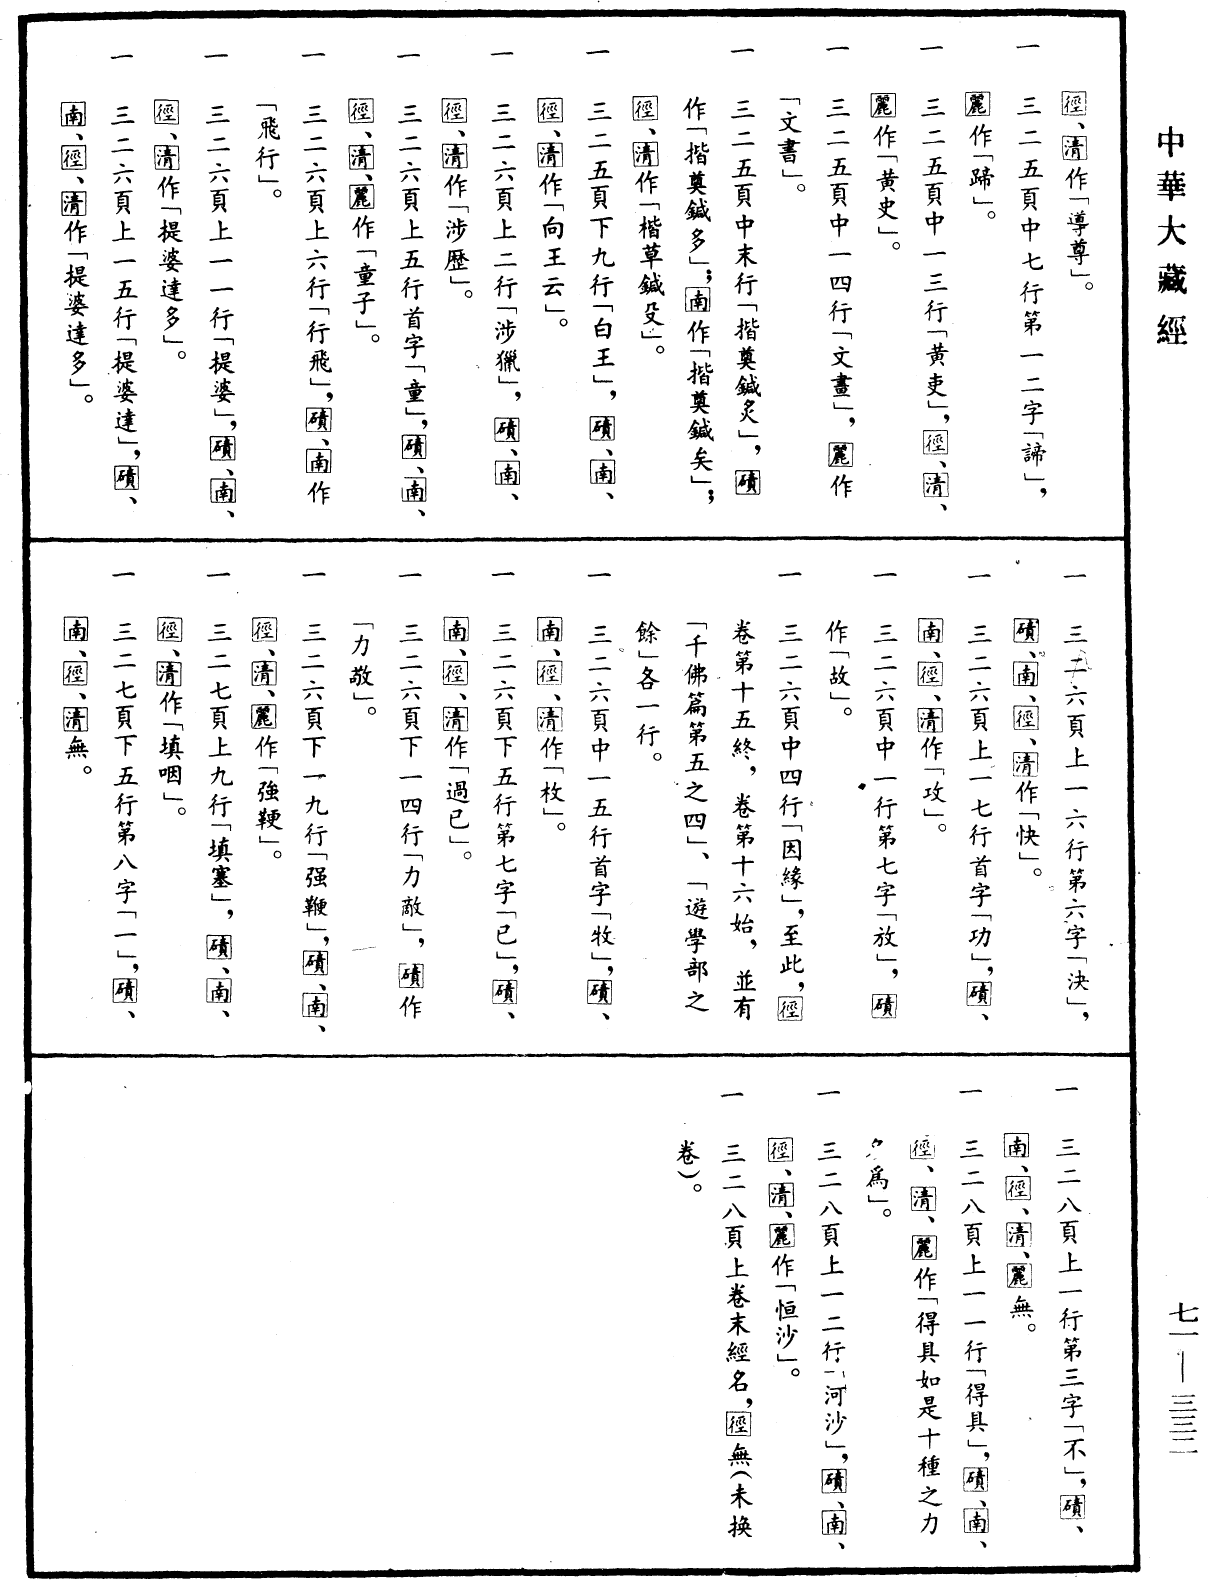 中華大藏經
七一—三三二
徑、清作「導尊」。
一　三二五頁中七行第一二字「諦」，
麗作「蹄」。
一　三二五頁中一三行「黃吏」，徑、清、
麗作「黃史」。
一　三二五頁中一四行「文畫」，麗作
「文書」。
一　三二五頁中末行「揩奠鍼炙」，磧
作「揩奠鍼多」；南作「揩奠鍼矣」；
徑、清作「楷草鍼殳」。
一　三二五頁下九行「白王」，磧、南、
徑、清作「向王云」。
一　三二六頁上二行「涉獵」，磧、南、
徑、清作「涉歷」。
一　三二六頁上五行首字「童」，磧、南、
徑、清、麗作「童子」。
一　三二六頁上六行「行飛」，磧、南作
「飛行」。
一　三二六頁上一一行「提婆」，磧、南、
徑、清作「提婆達多」。
一　三二六頁上一五行「提婆達」，磧、
南、徑、清作「提婆達多」。
一　三二六頁上一六行第六字「決」，
磧、南、徑、清作「快」。
一　三二六頁上一七行首字「功」，磧、
南、徑、清作「攻」。
一　三二六頁中一行第七字「放」，磧
作「故」。
一　三二六頁中四行「因緣」，至此，徑
卷第十五終，卷第十六始，並有
「千佛篇第五之四」、「遊學部之
餘」各一行。
一　三二六頁中一五行首字「牧」，磧、
南、徑、清作「枚」。
一　三二六頁下五行第七字「已」，磧、
南、徑、清作「過已」。
一　三二六頁下一四行「力敵」，磧作
「力敬」。
一　三二六頁下一九行「强鞕」，磧、南、
徑、清、麗作「強鞭」。
一　三二七頁上九行「填塞」，磧、南、
徑、清作「填咽」。
一　三二七頁下五行第八字「一」，磧、
南、徑、清無。
一　三二八頁上一行第三字「不」，磧、
南、徑、清、麗無。
一　三二八頁上一一行「得具」，磧、南、
徑、清、麗作「得具如是十種之力
名爲」。
一　三二八頁上一二行「河沙」，磧、南、
徑、清、麗作「恒沙」。
一　三二八頁上卷末經名，徑無（未換
卷）。